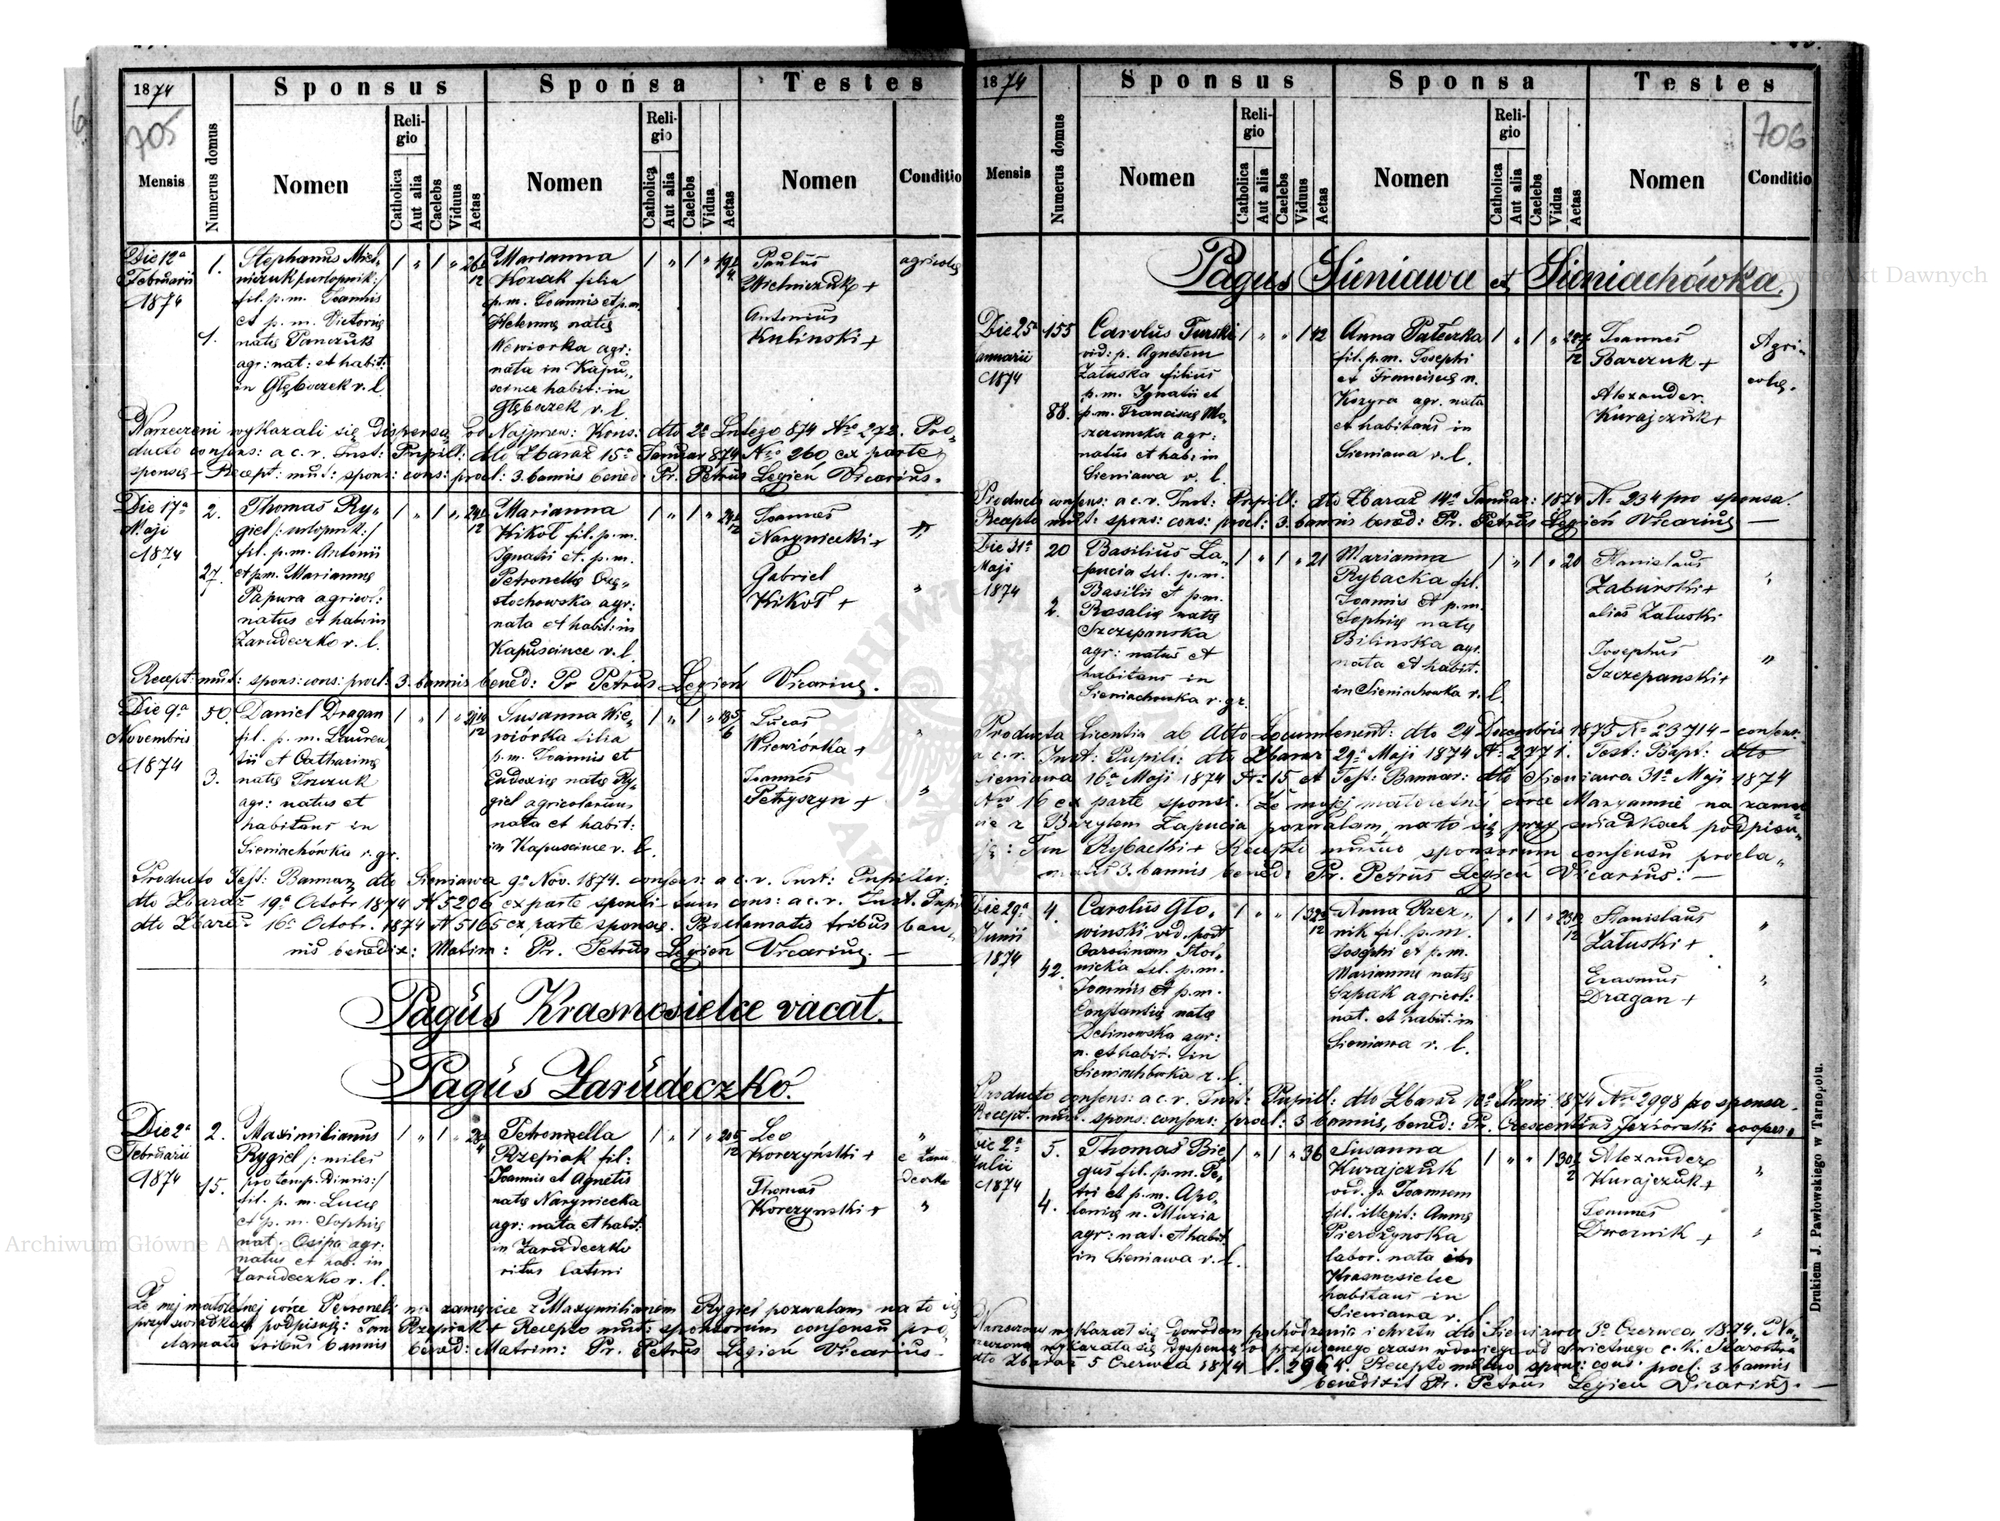 1874
705
Sponsus
Sponsa
Testes
Mensis
Numerus domus
Nomen
Religio
Catholica
Aut alia
Caelebs
Viduus
Aetas
Nomen
Religio
Catholica
Aut alia
Caelebs
Vidua
Aetas
Nomen
Conditio
Die 12a
Februarii
1874
1.
1.
Stephanus Miel-
niczuk
fil. p. m. Joannis
et p. m. Victorię
natę Panczuk
agr: nat: et habit:
in Głęboczek r. l.
Marianna
Kozak filia
p. m. Joannis et p. m.
Helenę natę
Wewiorka agr:
nata in Kapu-
scince habit: in
Głęboczek r. l.
Paulus
Mielniczuk +
Antonius
Kulinski +
agricolę
Narzeczeni wykazali się Dispensą od Najprzew: Kons: dto 2a Lutego 874 Nro 272. Pro-
ducto consens: a c. r. Inst: Pupill: dto Zbaraż 15a Januar 874 Nro 260 ex parte
sponsę – Recept: mut: spons: cons: procl: 3. bannis bened. Pr. Petrus Legień Vicarius.
Die 17a
Maji
1874
2.
27.
Thomas Ry-
giel /: urlopnik:/
fil. p. m. Antonii
et p. m. Mariannę
Papura agricol:
natus et hab: in
Zarudeczko r. l.
Marianna
Kikoł fil. p. m.
Ignatii et p. m.
Petronellę
stochowska agr:
nata et habit: in
Kapuscince r. l.
Joannes
Naryniecki +
Gabriel
Kikoł +
Recept: mut: spons: cons: procl: 3. bannis bened: Pr Petrus Legień Vicarius.
Die 9a
Novembris
1874
50.
3.
Daniel Dragan
fil. p. m. Lauren-
tii et Catharinę
natę Trzuk
agr: natus et
habitans in
Sieniachówka r. gr.
Susanna Wie-
wiórka filia
p. m. Joannis et
Eudoxię natę Ry-
giel agricolarum
nata et habit:
in Kapuscince r. l.
Lucas
Wiewiórka +
Joannes
Petryszyn +
Producto Test: Bannar: dto Sieniawa 9a Nov. 1874. consens: a c. r. Inst: Pupillar:
dto Zbaraż 19a Octobr 1874 N 5206 ex parte sponsi – tum cons: a c. r. Inst. Pupil
dto Zbaraż 16a Octobr. 1874 N 5165 ex parte sponsę. Proclamatis tribus ban-
nis benedix: Matrim: Pr. Petrus Legień Vicarius. –
Pagus Krasnosielce vacat.
Pagus Zarudeczko.
Die 2a
Februarii
1874
2.
15.
Maximilianus
Rygiel /: miles
pro temp. Dimis:/
fil. p. m. Lucę
et p. m. Sophię
nat. Osipa agr:
natus et hab. in
Zarudeczko r. l.
Petronella
Rzepiak fil:
Joannis et Agnetis
natę Naryniecka
agr: nata et habit:
in Zarudeczko
ritus latini
Leo
Korczyński +
Thomas
Korczynski +
e Zaru
deczko
Że mej małoletnej córce Petroneli na zamęście z Maxymilianem Rygieł pozwalam na to się
przy świadkach podpisuję: Jan Rzepiak + Recepto mut: sponsorum consensu pro-
clamatis tribus bannis bened: Matrim: Pr. Petrus Legień Vicarius –
1874
706
Sponsus
Sponsa
Testes
Mensis
Numerus domus
Nomen
Religio
Catholica
Aut alia
Caelebs
Viduus
Aetas
Nomen
Religio
Catholica
Aut alia
Caelebs
Vidua
Aetas
Nomen
Conditio
Pagus Sieniawa et Sieniachówka.
Die 25a
Januarii
1874
155
88.
Carolus Turski
vid: p. Agnetem
Załuska filius
p. m. Ignatii et
p. m. Franciscę Mo-
szczanska agr:
natus et hab: in
Sieniawa r. l.
42
Anna Pałeczka
fil. p. m. Josephi
et Franciscę n.
Kozyra agr. nata
et habitans in
Sieniawa r. l.
Joannes
Barczuk +
Alexander
Kurajczuk +
Agri-
colę.
Producto consens: a c. r. Inst: Pupill: dto Zbaraż 14a Januar: 1874 N. 234 pro sponsa.
Recepto mut: spons: cons: procl: 3. bannis bened: Pr. Petrus Legień Vicarius –
Die 31a
Maji
1874
20
2.
Basilius La-
pucia fil. p. m.
Basilii et p. m.
Rosalię natę
Szczepanska
agr: natus et
habitans in
Sieniachowka r. gr.
21
Marianna
Rybacka fil.
Joannis et p. m.
Sophię natę
Bilinska agr.
nata et habit.
in Sieniachowka r. l.
20
Stanislaus
Zaburski +
alias Załuski
Josephus
Szczepanski +
Producta Licentia ab Alto Locumtenent: dto 24 Decembris 1873 No 23714 – consens:
a c. r. Inst: Pupill: dto Zbaraż 29a Maji 1874 N. 2771. Test: Bapt: dto
Sieniawa 16a Maji 1874 No 15 et Test: Bannar: dto Sieniawa 31a Maji 1874
Nro 16 ex parte sponsi. Że mojej małoletnej córce Maryannie na zamę-
cie z Bazylem Łapucia pozwalam, na to się przy świadkach podpisu-
ję: Jan Rybacki + Recepto mutuo sponsorum consensu procla-
matis 3. bannis bened: Pr. Petrus Legień Vicarius: –
Die 29a
Junii
1874
4.
42.
Carolus Gło-
winski vid. post
Carolinam Stol-
nicka fil. p. m.
Joannis et p. m.
Constantię natę
Delinowska agr:
n. et habit. in
Sieniachówka r. l.
Anna Rzez-
nik fil. p. m.
Josephi et p. m.
Mariannę natę
Szpak agricol:
nat. et habit: in
Sieniawa r. l.
Stanislaus
Załuski +
Erasmus
Dragan +
Producto consens: a c. r. Inst: Pupill: dto Zbaraż 10a Junii 1874 Nro 2998 pro sponsa.
Recept. mut. spons: consens: procl: 3 bannis, bened: Pr. Crescentius Jeziorski cooper.
Die 2a
Julii
1874
5.
4.
Thomas Bie-
gus fil. p. m. Pe-
tri et p. m. Apo-
lonię n. Muzia
agr: nat. et habit.
in Sieniawa r. l.
36
Susanna
Kurajczuk
vid. p. Joannem
fil. illegit: Annę
Pierczynska
labor. nata in
Krasnosielce
habitans in
Sieniawa r. l.
Alexander
Kurajczuk +
Joannes
Dwornik +
Narzeczony wykazał się dowodem pochodzenia i chrztu dto Sieniawa 3o Czerwca 1874. Na-
rzeczona wykazała się dyspensą od przepisanego czasu wdowiego od Świetnego c. k. Starostwa
dto Zbaraż 5 Czerwca 1874 l. 2964. Recepto mutuo spons: cons: procl. 3 bannis
benedixit Pr. Petrus Legień Vicarius. –
Drukiem J. Pawłowskiego w Tarnopolu.
Archiwum Główne Akt Dawnych